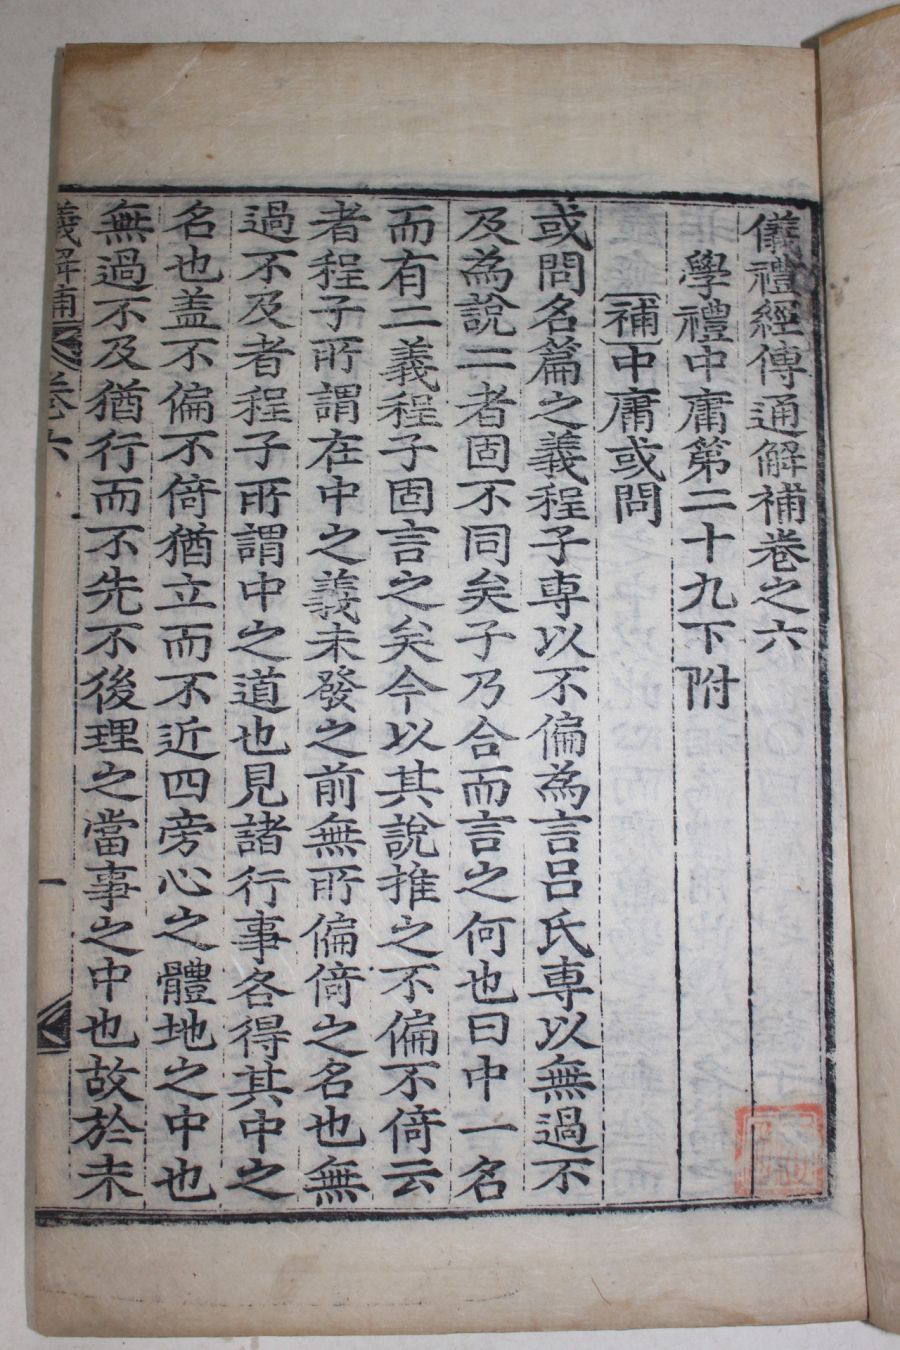 儀禮經傳通解補卷之六
學禮中庸第二十九下附
補中庸或問
或問名篇之義程子專以不偏為言呂氏專以無過不
及為說二者固不同矣子乃合而言之何也曰中一名
而有二義程子固言之矣今以其說推之不偏不倚云
者程子所謂在中之義未發之前無所偏倚之名也無
過不及者程子所謂中之道也見諸行事各得其中之
名也盖不偏不倚猶立而不近四旁心之體地之中也
無過不及猶行而不先不後理之當事之中也故於未
義解補 卷六 一